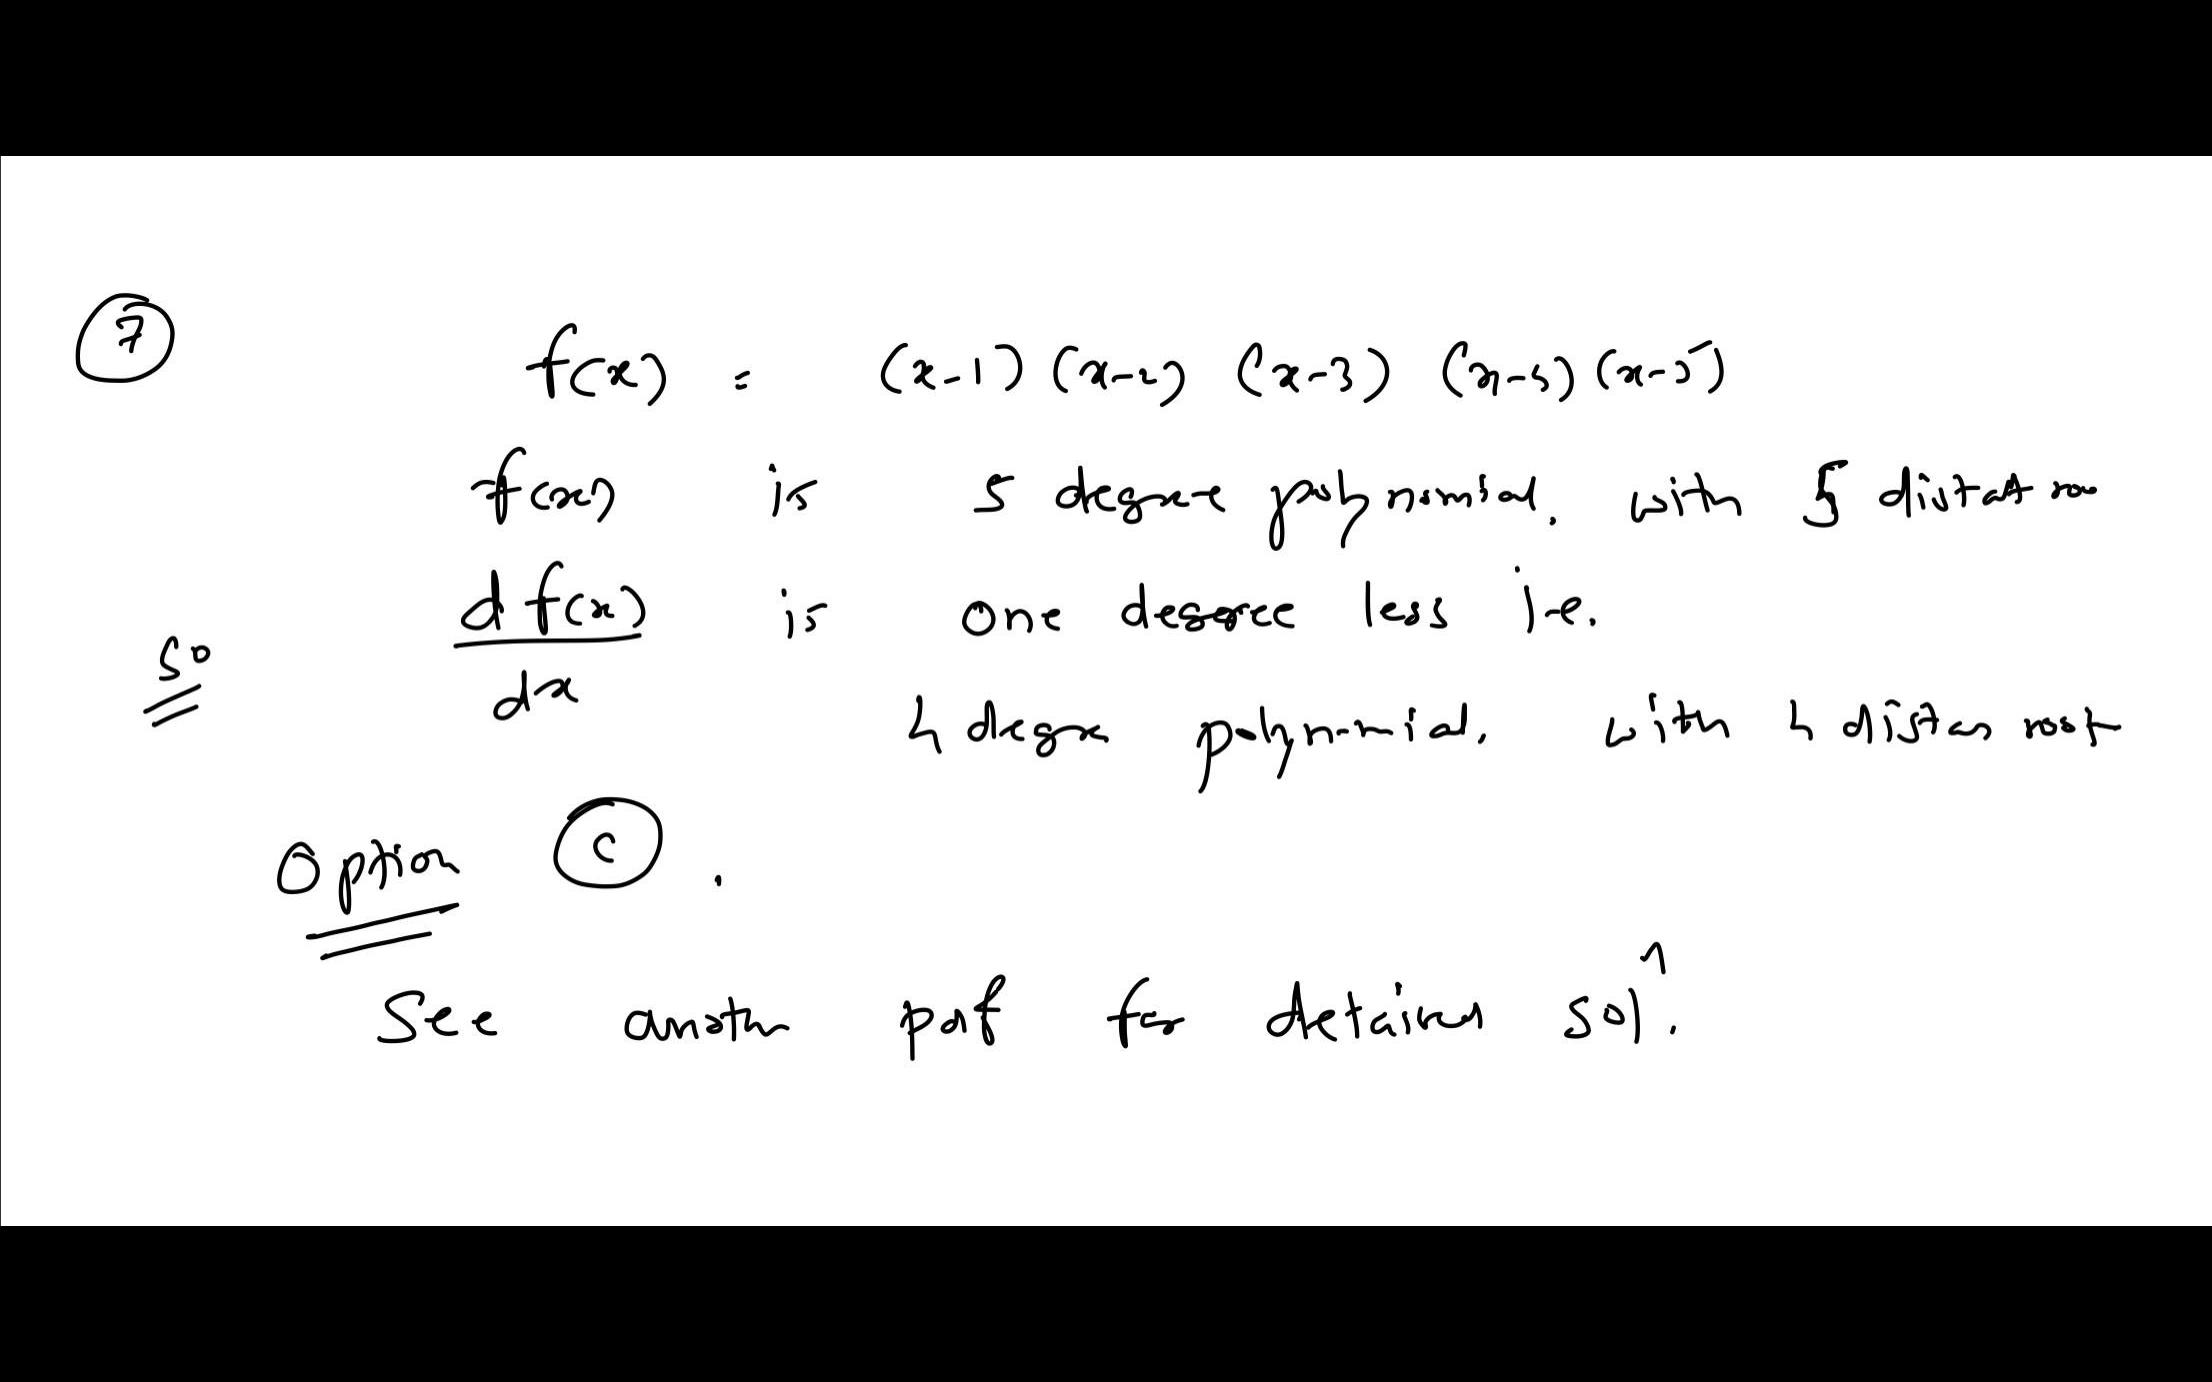 7
f(x) = (x-1) (x-2) (x-3) (x-4) (x-5)
f(x) is 5 degree polynomial. with 5 distict
d f(x) is one degree less i-e.
So
dx
4 degre polynomial. with 4 root
Option C.
See another pdf for detailed solⁿ.